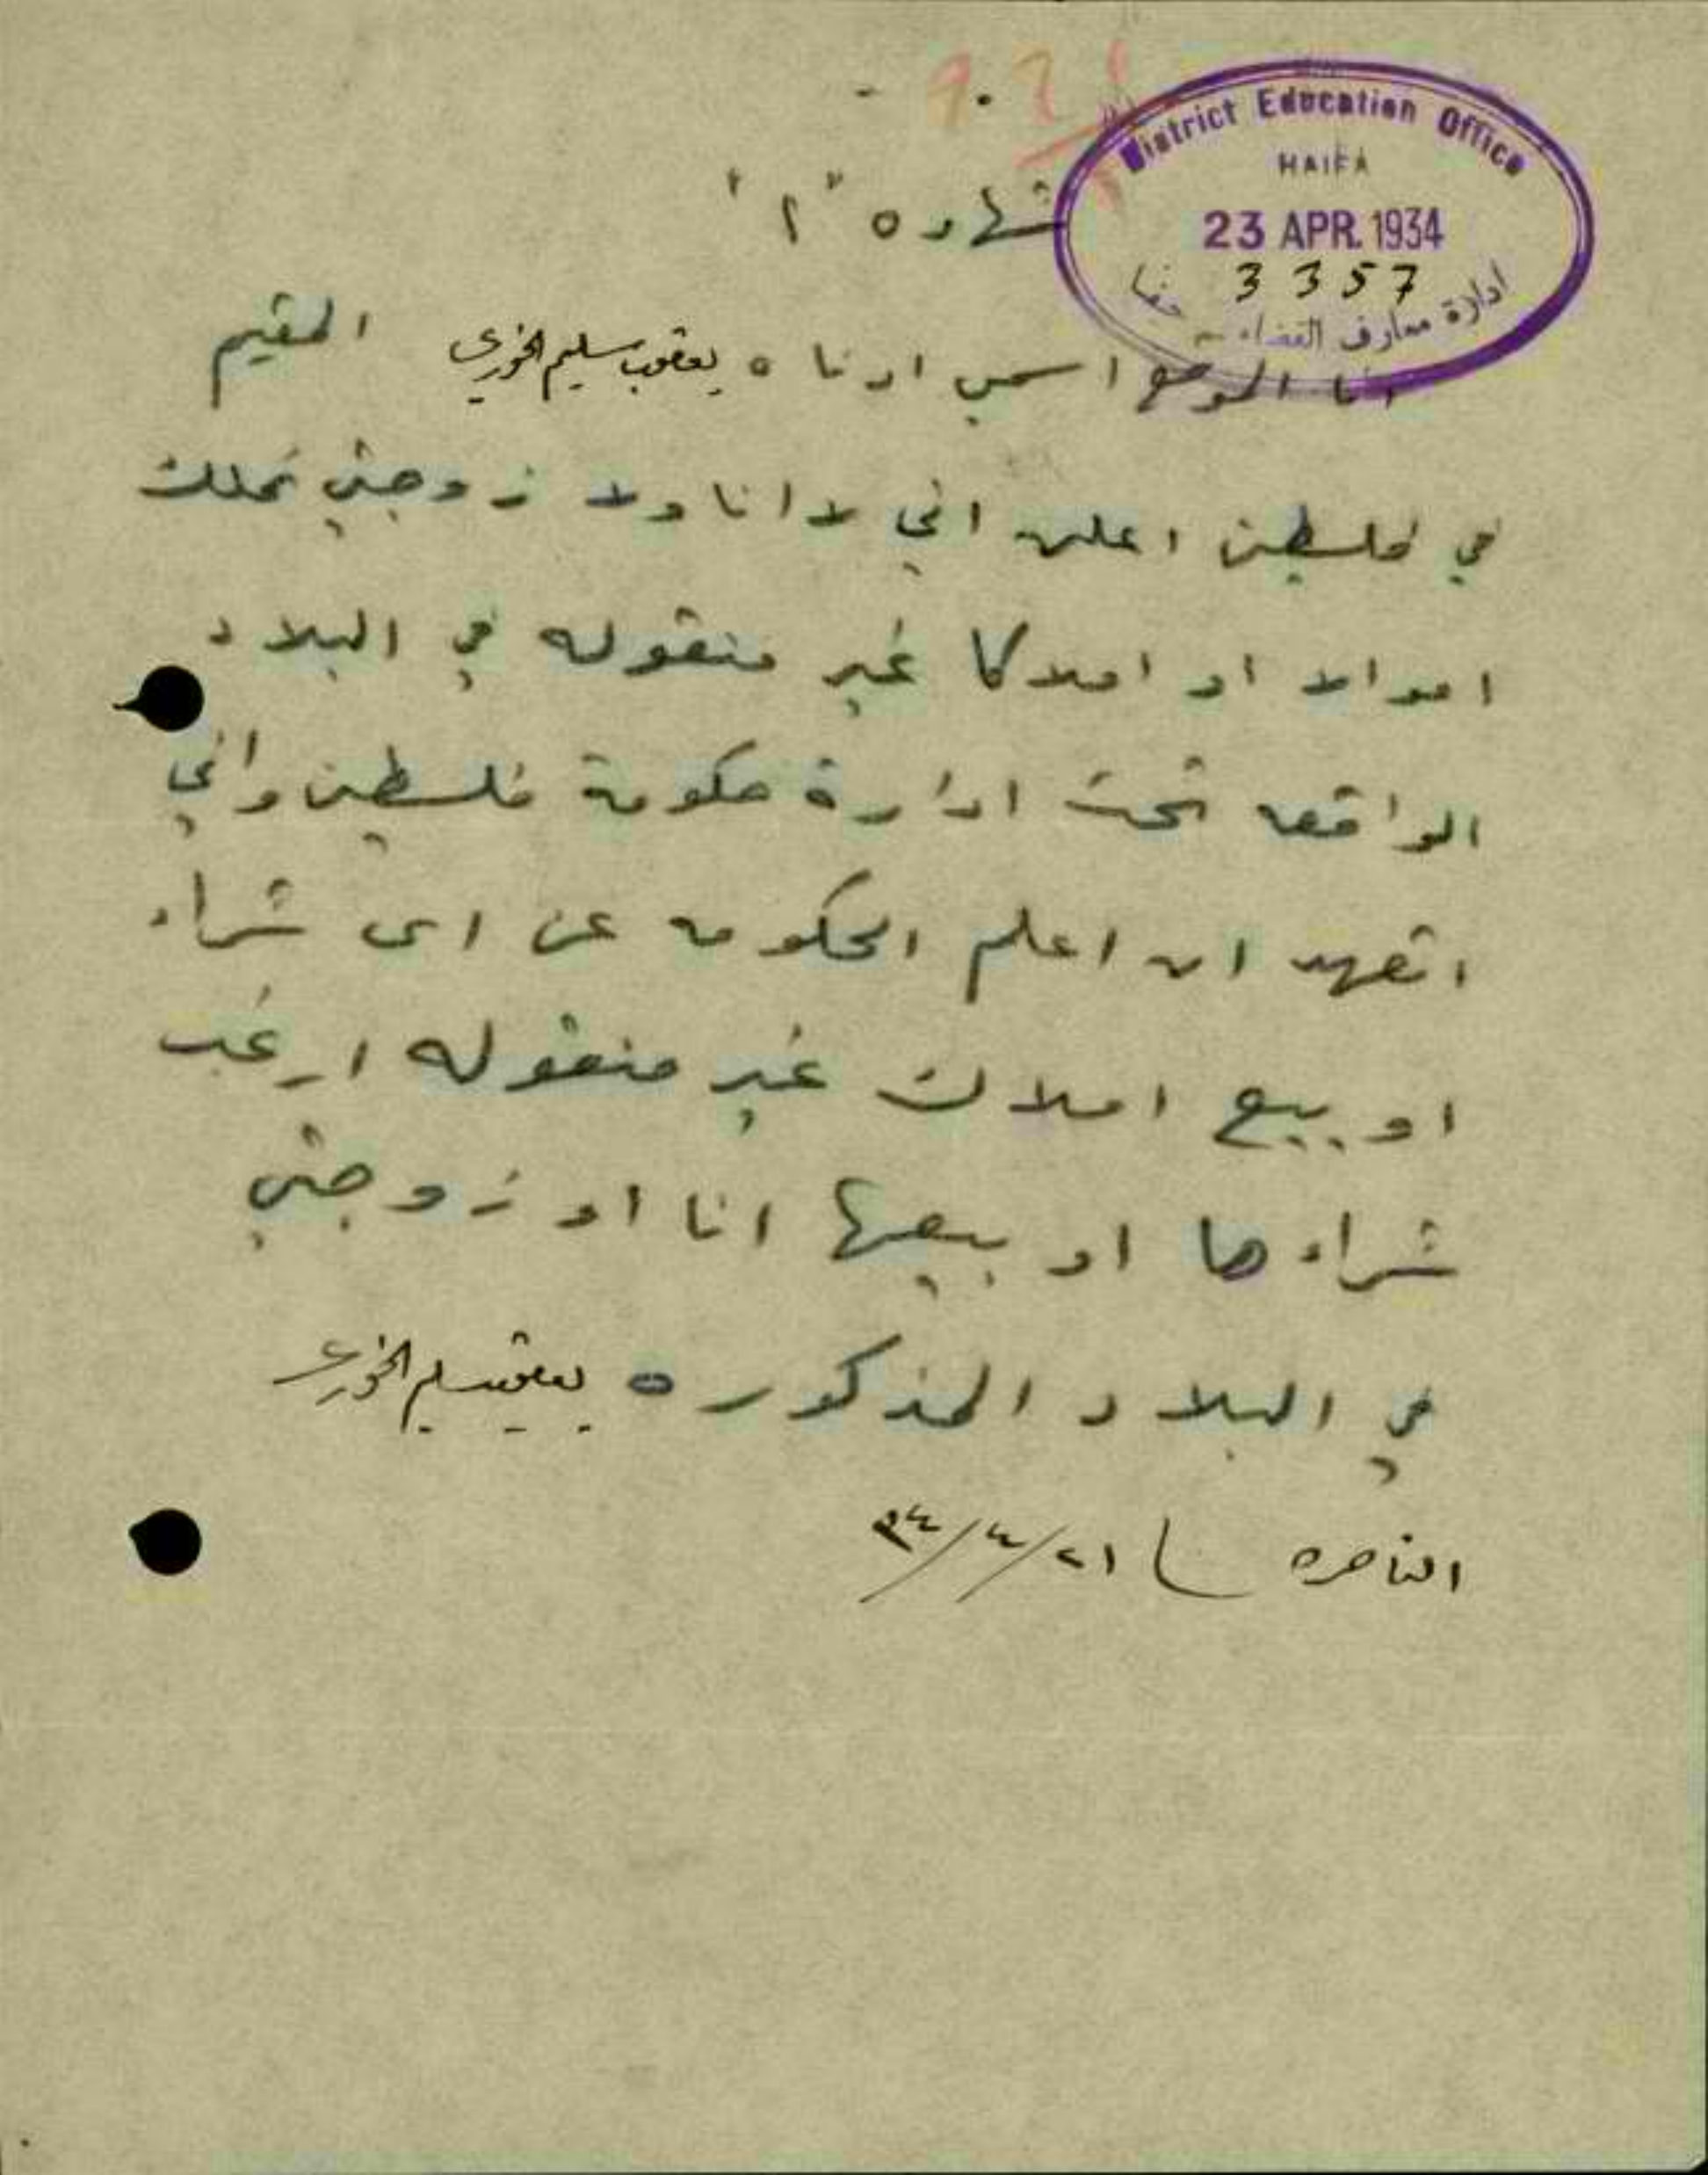 District Education Office
HAIFA
23 APR. 1934
3357
ادارة معارف القضاء حيفا
شهاده "ا"
انا الموقع اسمي ادناه يعقوب سليم الخوري المقيم
في فلسطين اعلن اني لا انا ولا زوجتي نملك
اموالا او املاكا غير منقوله في البلاد
الواقعه تحت ادارة حكومة فلسطين واني
اتعهد ان اعلم الحكومه عن اي شراء
او بيع املاك غير منقوله ارغب
شراءها او بيعها انا او زوجتي
في البلاد المذكوره يعقوب سليم الخوري
الناصره في ٢١/٤/٣٤